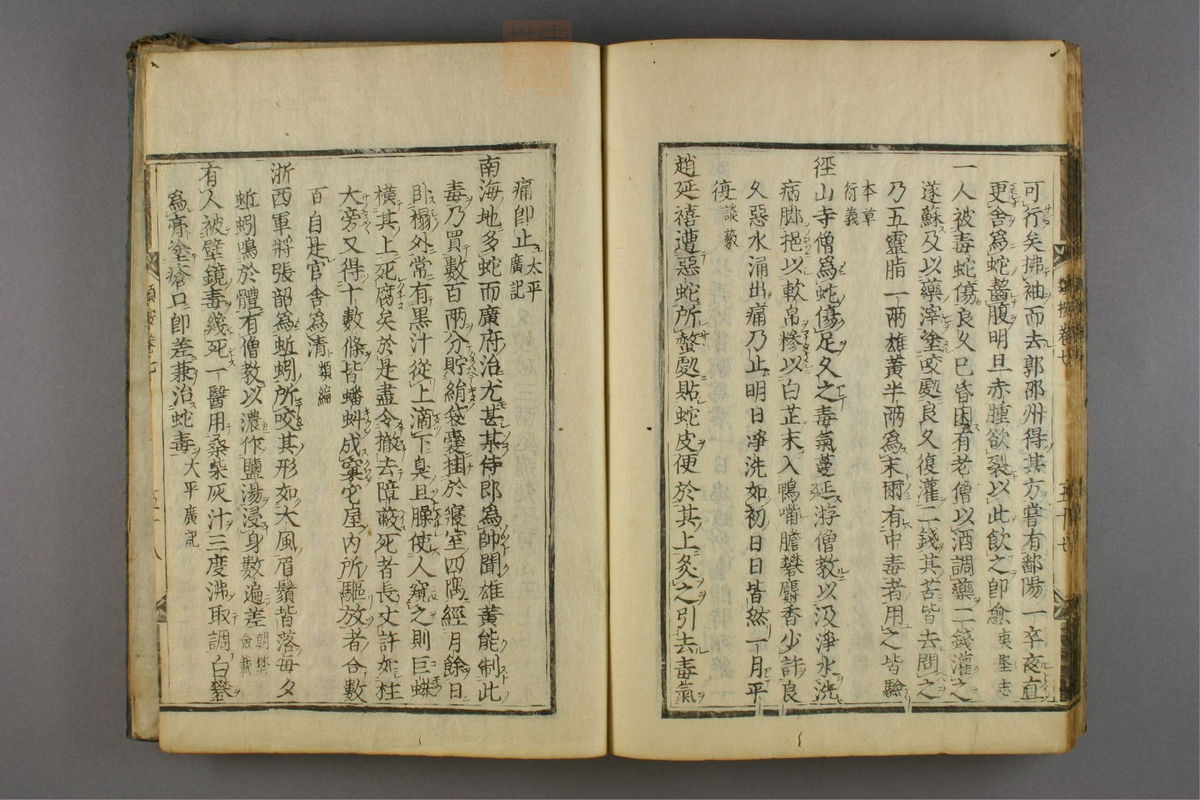 可行矣拂袖而去郭邵州得其方嘗有鄱陽一卒夜直
更舍爲蛇齧腹明旦赤腫欲裂以此飲之卽愈 夷堅志
一人被毒蛇傷良久已昏困有老僧以酒調藥二錢灌之
遂蘇及以藥滓塗咬處良久復灌二錢其苦皆去問之
乃五靈脂一兩雄黃半兩爲末爾有中毒者用之皆驗
本草衍義
徑山寺僧爲蛇傷足久之毒氣蔓延游僧教以汲淨水洗
病脚挹以軟帛糝以白芷末入鴨嘴膽礬麝香少許良
久惡水涌出痛乃止明日淨洗如初日日皆然一月平
復 談藪
趙延禧遭惡蛇所螫處貼蛇皮便於其上灸之引去毒氣
五十七
痛卽止 太平廣記
南海地多蛇而廣府治尤甚某侍郎爲帥聞雄黃能制此
毒乃買數百兩分貯絹袋囊挂於寢室四隅經月餘日
臥榻外常有黑汁從上滴下臭且臊使人窺之則巨蟒
橫其上死腐矣於是盡令撤去障蔽死者長丈許如柱
大旁又得十數條皆蟠蚪成窠它屋內所驅放者合數
百自是官舍爲清 類編
浙西軍將張韶爲蚯蚓所咬其形如大風眉鬚皆落每夕
蚯蚓鳴於體有僧教以濃作鹽湯浸身數遍差 朝野僉載
有人被壁鏡毒幾死一醫用桑柴灰汁三度沸取調白礬
爲膏塗瘡口卽差兼治蛇毒 太平廣記
五十八